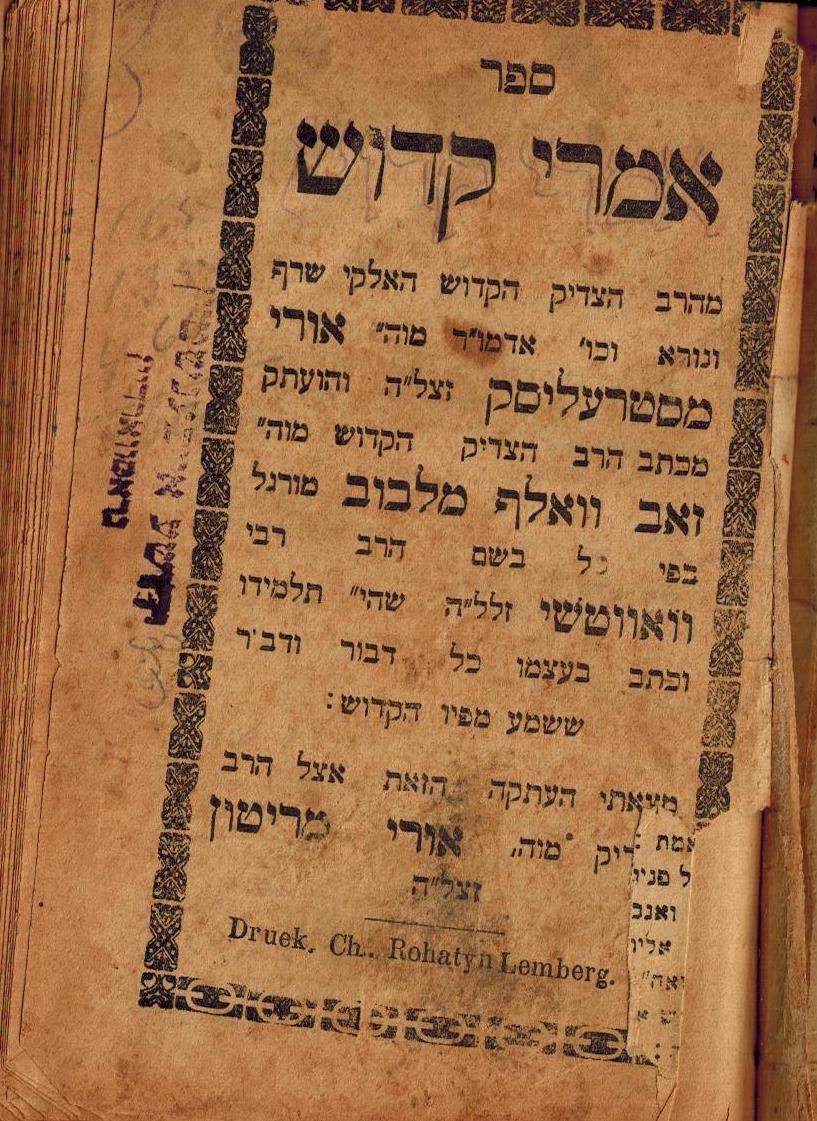 ספר
אמרי קדוש
מהרב הצדיק הקדוש האלקי שרף
ונורא וכו' אדמו"ר מוה" אורי
מסטרעליסק זצל"ה והועתק
מכתב הרב הצדיק הקדוש מוה"
זאב וואלף מלבוב מורגל
בפי כל בשם הרב רבי
וואווטשי זלל"ה שהי" תלמידו
וכתב בעצמו כל דבור ודבור
ששמע מפיו הקדוש:
מצאתי העתקה הזאת אצל הרב
מוה, אורי מריטון
זצל"ה
Druek. Ch.. Rohatyn Lemberg.
אמת :
ל פניו
ואנכ
אליו
יהושע